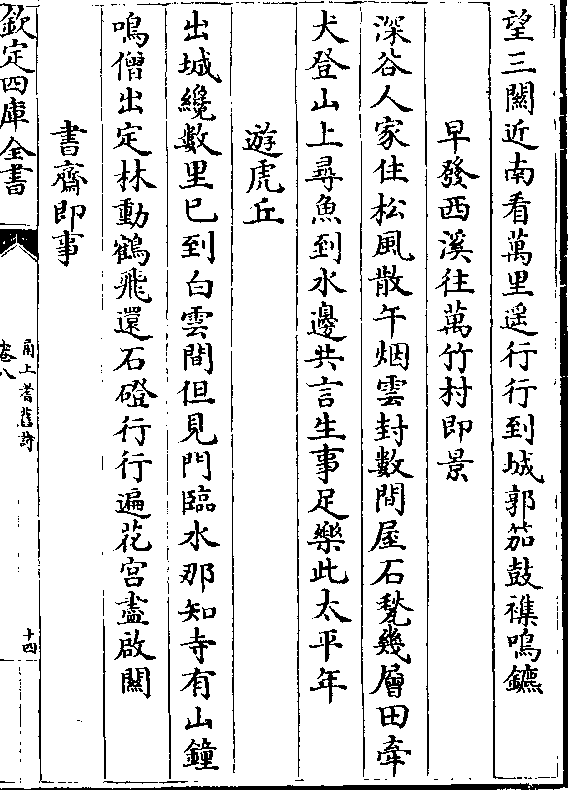 望三關近南看萬里遥行行到城郭笳鼓襍鳴鑣
早發西溪往萬竹村即景
深谷人家住松風散午烟雲封數間屋石甃幾層田牽
犬登山上尋魚到水邊共言生事足樂此太平年
遊虎丘
出城纔數里已到白雲間但見門臨水那知寺有山鐘
鳴僧出定林動鶴飛還石磴行行遍花宫盡啟關
書齋即事
欽定四庫全書
甬上耆舊詩
卷八
十四